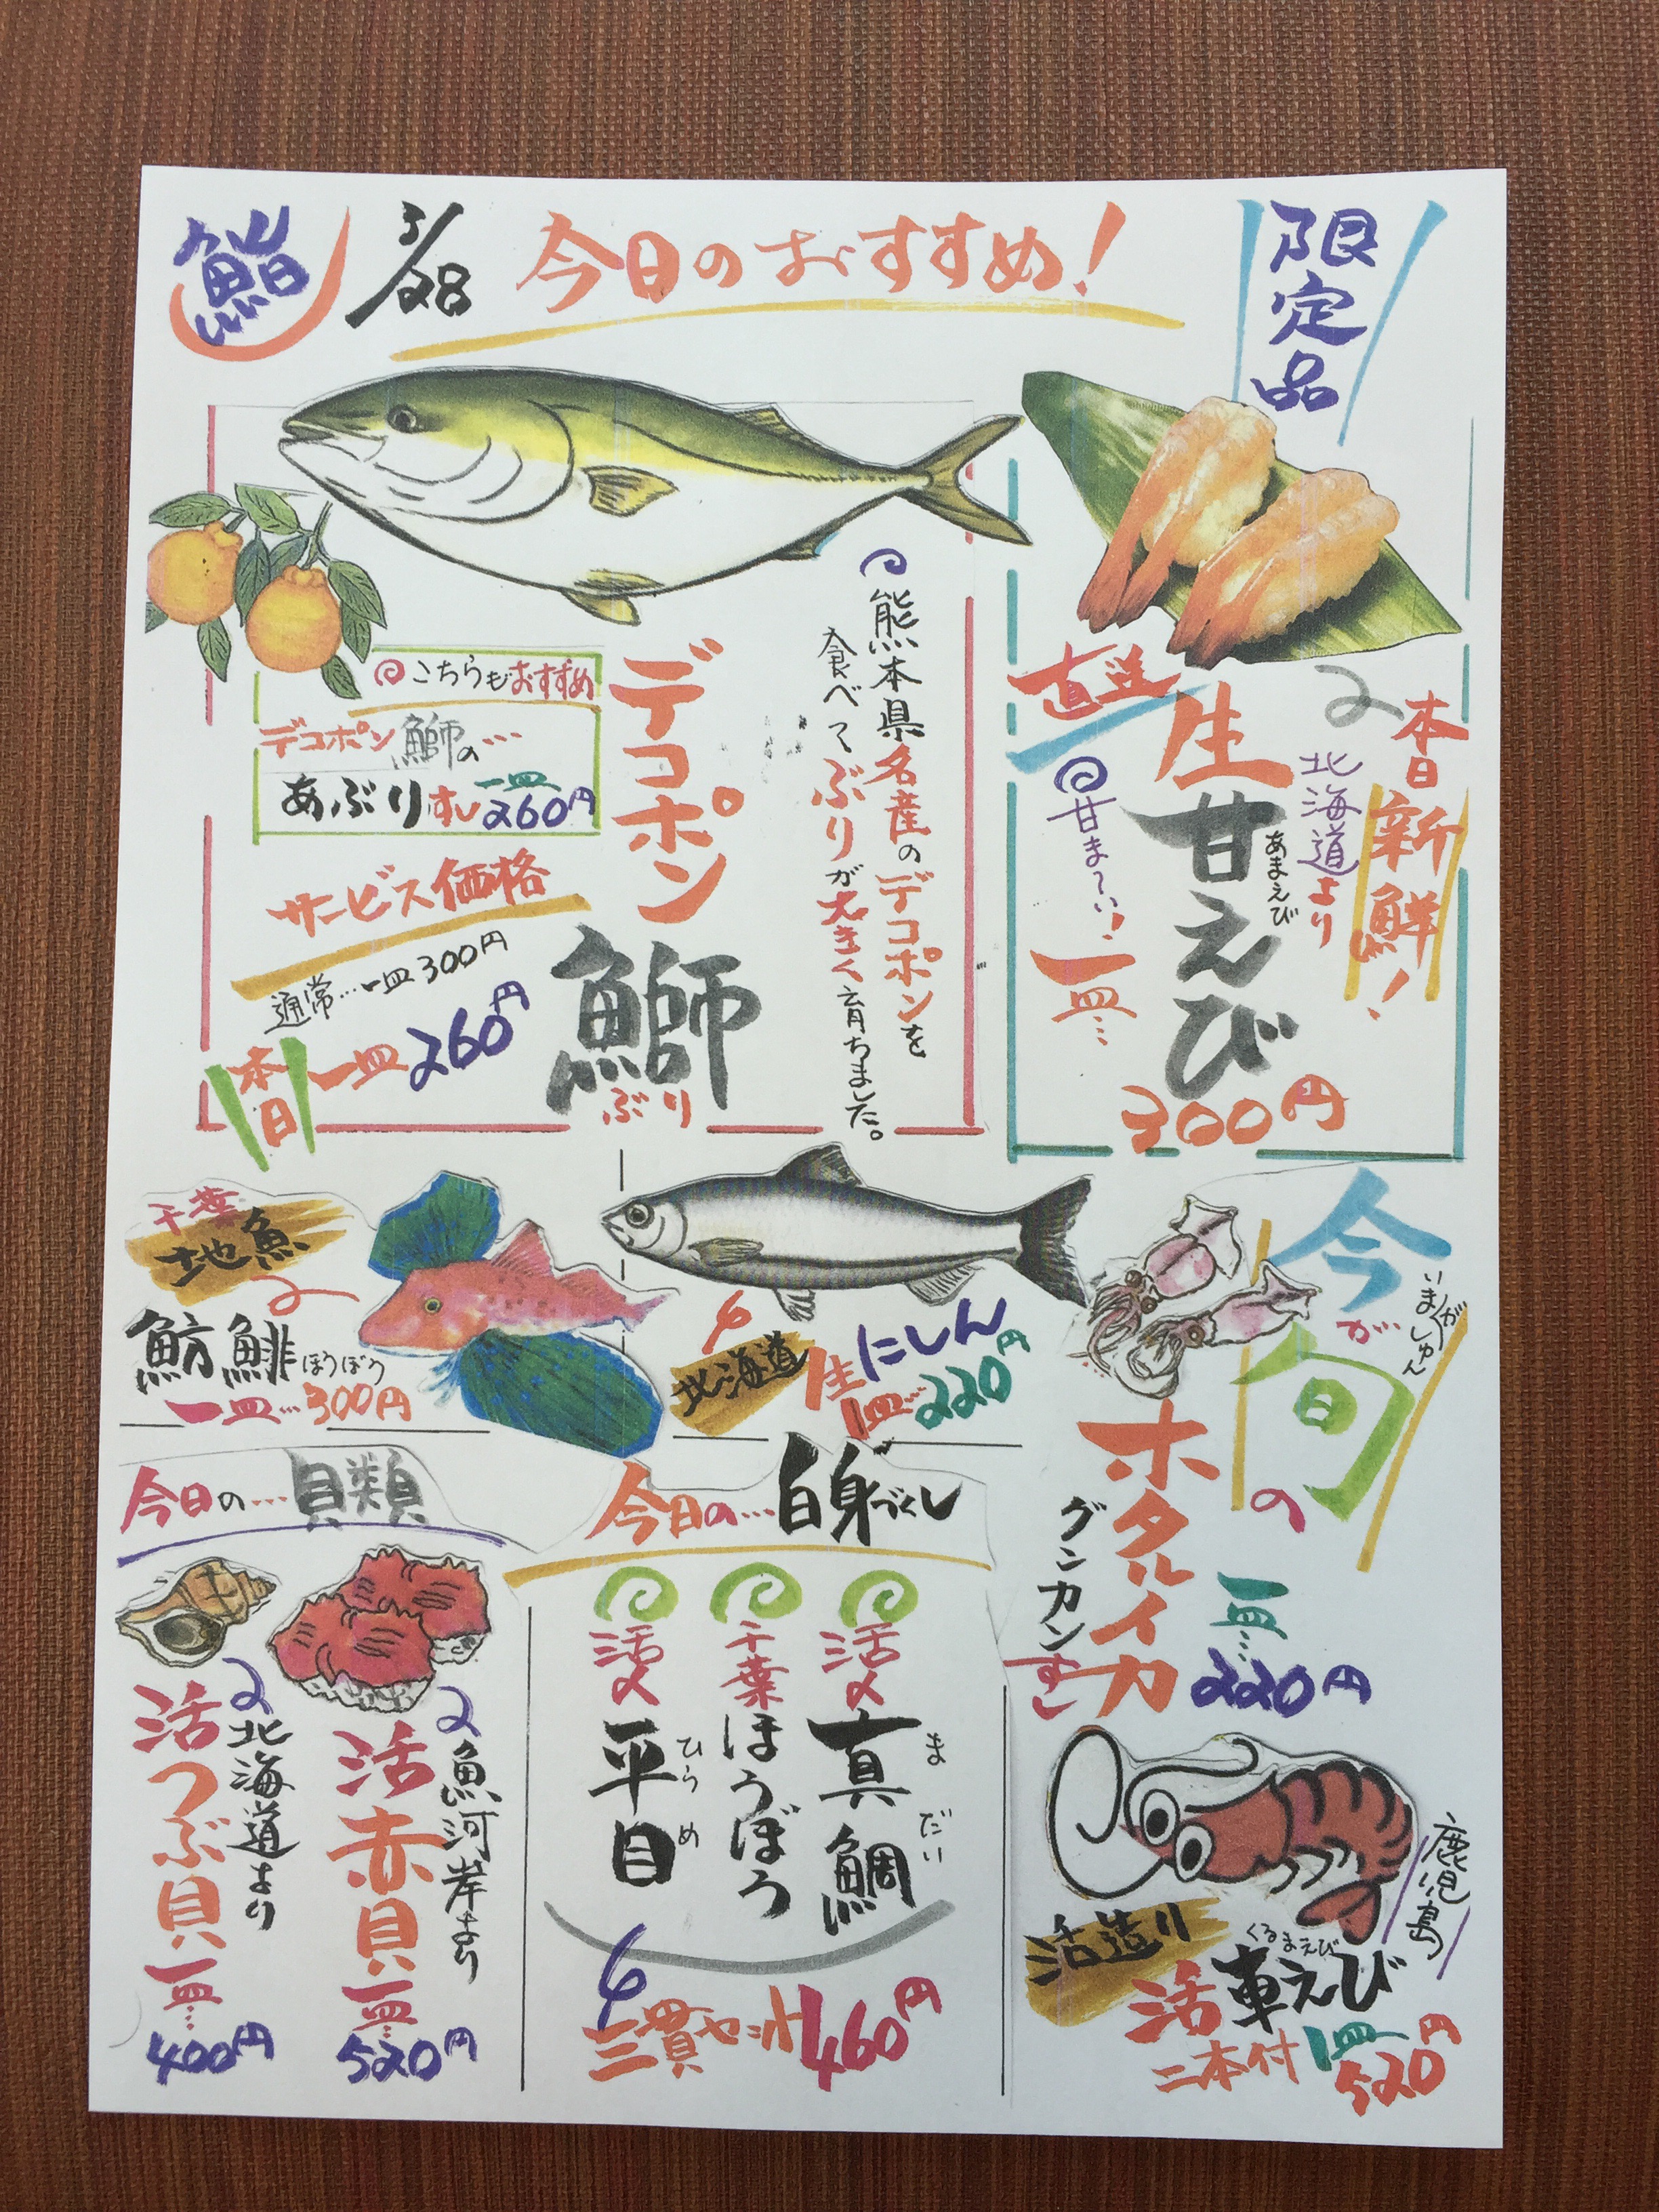 鮨
3/28
今日のおすすめ!
限定品
熊本県名産のデコポンを
食べてぶりが大きく育ちました。
デコポン
鰤
ぶり
こちらもおすすめ
デコポン鰤の…
あぶりすし一皿260円
サービス価格
通常…一皿300円
本日
一皿260円
本日新鮮!
北海道より
直送
生甘えび
あまえび
甘ま〜い!
一皿…
300円
千葉
地魚
魴鮄
ほうぼう
一皿…300円
北海道
生にしん
1皿…220円
今が旬の
いまがしゅん
ホタルイカ
グンカンすし
一皿…
220円
今日の…貝類
北海道より
活つぶ貝
一皿…
400円
魚河岸より
活赤貝
一皿…
520円
今日の…白身づくし
活〆
真鯛
まだい
千葉
ほうぼう
活〆
平目
ひらめ
三貫セット460円
鹿児島
活造り
活車えび
くるまえび
二本付
1皿
520円